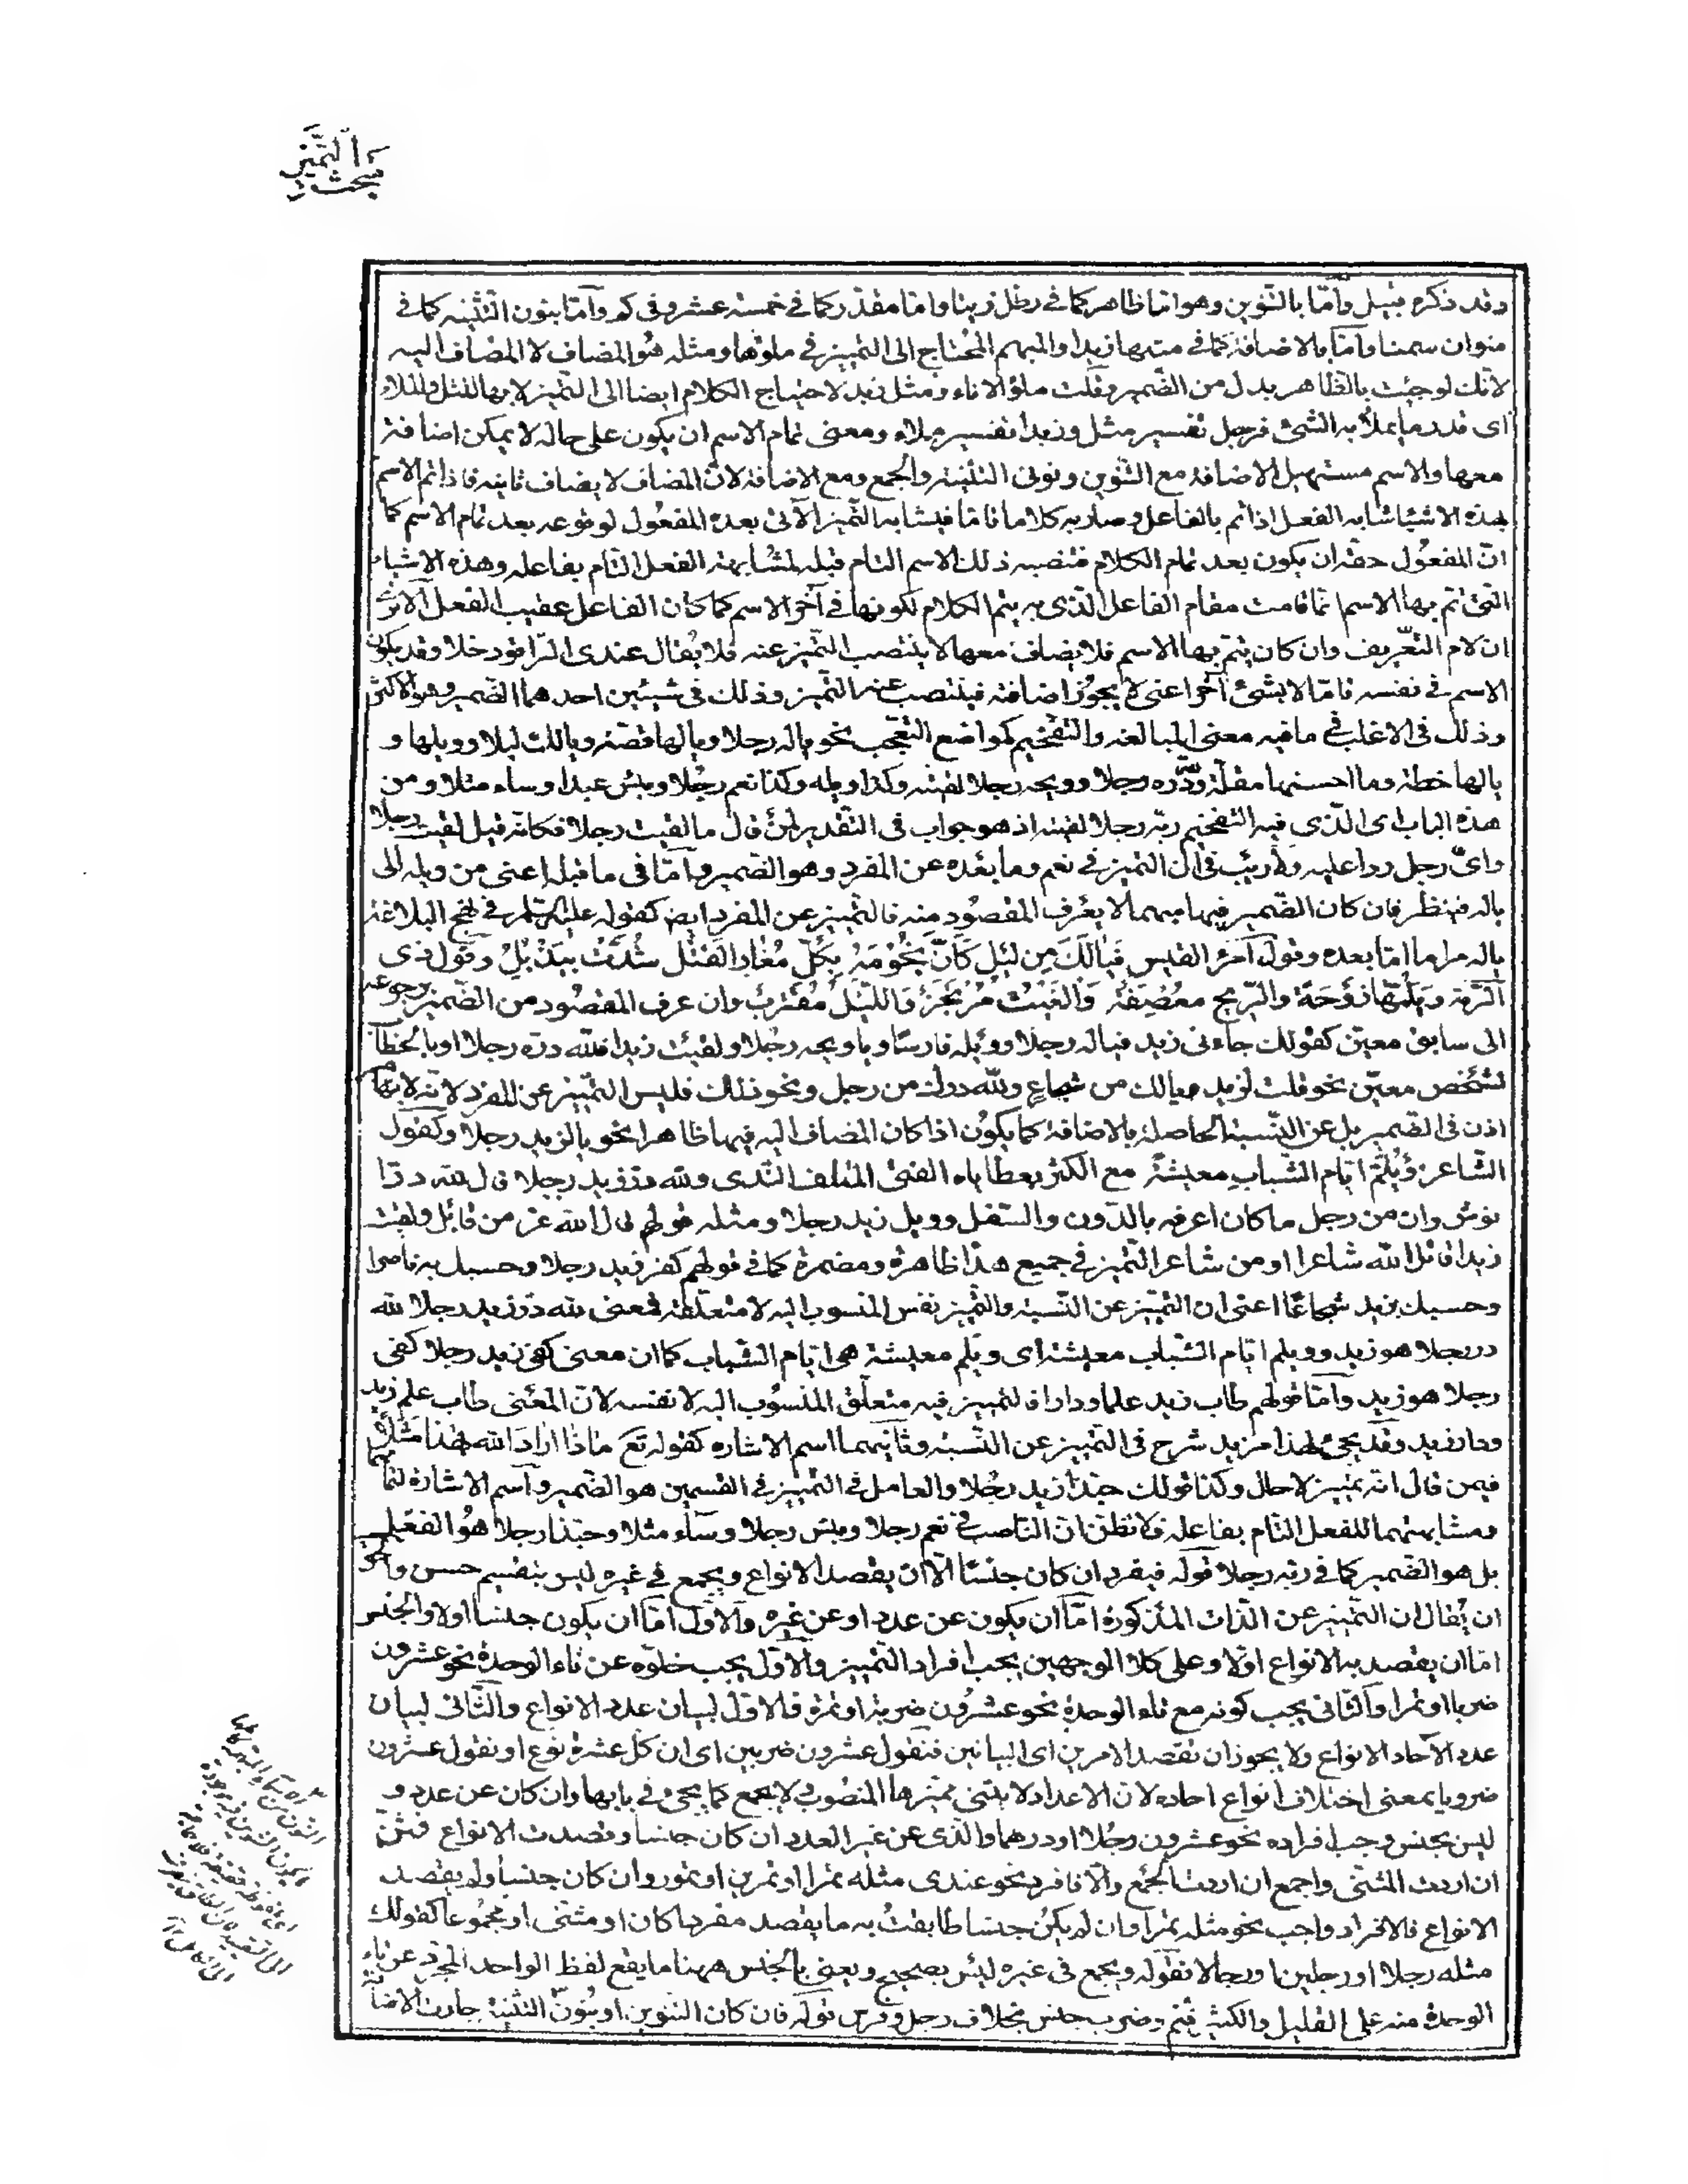 بحث التميز
وقد ذكره قبيل وامّا بالتنوين وهو امّا ظاهر كما في رطل زيتا وامّا مقدّر كما في خمسة عشر وفي كم وامّا بنون التثنية كما في
منوان سمنا وامّا بالاضافة كما في مثلها زيدا والمبهم المحتاج الى التميز في ملؤها ومثله هو المضاف لا المضاف اليه
لانّك لو جئت بالظاهر بدل من الضمير وقلت ملؤ الاناء ومثل زيد لاحتياج الكلام ايضا الى التميز لابهام المثل والملاء
اى قدر ما يملأ به الشئ فرجل تفسير مثل وزبدا تفسير ملاء ومعنى تمام الاسم ان يكون على حالة لا يمكن اضافته
معها والاسم مستحيل الاضافة مع التنوين ونونى التثنية والجمع ومع الاضافة لانّ المضاف لا يضاف ثانية فاذا تم الاسم
بهذه الاشيا شابه الفعل اذا تم بالفاعل وصار به كلاما تامّا فيشابه التميز الآتى بعده المفعول لوقوعه بعد تمام الاسم كما
انّ المفعول حقه ان يكون بعد تمام الكلام فنصبه ذلك الاسم التام قبله لمشابهته الفعل التام بفاعله وهذه الاشياء
التى تم بها الاسم انما قامت مقام الفاعل الذى به يتم الكلام لكونها في آخر الاسم كما كان الفاعل عقيب الفعل ألا ترى
ان لام التعريف وان كان يتم بها الاسم فلا يضاف معها لا ينتصب التميز عنه فلا يقال عندى الراقود خلا وقد يكون
الاسم في نفسه تامّا لا بشئ آخر اعنى لا يجوز اضافته فينتصب عنه التميز وذلك في شيئين احدهما الضمير وهو الاكثر
وذلك في الاغلب في ما فيه معنى المبالغة والتفخيم كمواضع التعجب نحو يا له رجلا ويا لها قصّة ويا لك ليلا وويلها و
يا لها خطة وما احسنها مقلة ولله درّه رجلا وويحه رجلا لقيته وكذا ويله وكذا نعم رجلا وبئس عبدا وساء مثلا ومن
هذه الباب اى الذى فيه التفخيم ربّه رجلا لقيته اذ هو جواب في التقدير لمن قال ما لقيت رجلا فكانّه قيل لقيت رجلا
واىّ رجل ردا عليه ولا ريب في ان التميز في نعم وما بعده عن المفرد وهو الضمير وامّا في ما قبله اعنى من ويله الى
يا له فينظر فان كان الضمير فيها مبهما لا يعرف المقصود منه فالتميز عن المفرد ايض كقوله عليه السلم في نهج البلاغة
يا له مراما ما ابعده وقول امرء القيس فَيٰا لَكَ مِن لَيْلٍ كَأَنَّ نُجُومَهُ بِكُلِّ مُغٰارِ الفَتْلِ شُدَّتْ بِيَذْبُلِ وقول ذى
الرّمة وَيلُمّها رَوْحَةً والرّيح معصِفَةٌ وَالغَيْثُ مُرْتَجِزٌ وَاللّيلُ مُقتَرِبٌ وان عرف المقصود من الضمير برجوعه
الى سابق معيّن كقولك جاءنى زيد فيا له رجلا وويله فارسًا ويا ويحه رجلا ولقيت زيدا فلله درّه رجلا او بالخطاب
لشخص معيّن نحو قلت لزيد يا لك من شجاع ولله درك من رجل ونحو ذلك فليس التميز عن المفرد لانه لا ابهام
اذن في الضمير بل عن النّسبة الحاصلة بالاضافة كما يكون اذا كان المضاف اليه فيها ظاهرا نحو يا لزيد رجلا وكقول
الشاعر وَيْلُمِّ ايام الشباب معيشةً مع الكثر يعطاه الفتى المتلف الندى ولله درّ زيد رجلا قال لله درّا
نوشروان من رجل ما كان اعرفه بالدون والسفل وويل زيد رجلا ومثله قولهم قال الله عز من قائل ولقيت
زيدا قاتل الله شاعرا او من شاعر التميز في جميع هذا ظاهرة ومضمرة كما في قولهم كفى زيد رجلا وحسبك به ناصرا
وحسبك بزيد شجاعًا اعنى ان التميز عن النسبة والتميز نفس المنسوب اليه لا متعلقه فمعنى لله درّ زيد رجلا لله
در رجلا هو زيد وويلم ايام الشباب معيشة اى ويلم معيشة هى ايام الشباب كما ان معنى كفى زيد رجلا كفى
رجلا هو زيد وامّا قولهم طاب زيد علما ودارا فالتميز فيه متعلّق المنسوب اليه لا نفسه لانّ المعنى طاب علم زيد
ودار زيد وقد يجئ لهذا مزيد شرح في التميز عن النسبة وثانيهما اسم الاشارة كقوله تع ماذٰا ارٰادَ الله بهٰذا مَثَلاً
فيمن قال انّه تميز لا حال وكذا قولك حبّذا زيد رجلا والعامل في التميز في القسمين هو الضمير واسم الاشارة لتمامهما
ومشابهتهما للفعل التام بفاعله فلا تظنّ انّ الناصب في نعم رجلا وبئس رجلا وساء مثلا وحبّذا رجلا هو الفعل
بل هو الضمير كما في ربّه رجلا قوله فيفرد ان كان جنسًا الّا ان يقصد الانواع ويجمع في غيره ليس بتقسيم حسن والحق
ان يقال ان التميز عن الذات المذكورة امّا ان يكون عن عدد او عن غيره والاوّل امّا ان يكون جنسا اولا والجنس
امّا ان يقصد به الانواع اولا وعلى كلا الوجهين يجب افراد التمييز والاوّل يجب خلوّه عن تاء الوحدة نحو عشرون
ضربا او تمرا والثانى يجب كونه مع تاء الوحدة نحو عشرون ضربة او تمرة فالاوّل لبيان عدد الانواع والثانى لبيان
عدد الآحاد الانواع ولا يجوز ان تقصد الامرين اى البيانين فتقول عشرون ضربين اى ان كل عشرة نوع او تقول عشرون
ضروبا بمعنى اختلاف انواع احاده لان الاعداد لا يثنى مميّزها المنصوب ولا يجمع كما يجئ في بابها وان كان عن عدد و
ليس بجنس وجب افراده نحو عشرون رجلا او درهما والذى عن غير العدد ان كان جنسا وقصدت الانواع فثنّ
ان اردت المثنى واجمع ان اردت الجمع والّا فافرد نحو عندى مثله تمرا او تمرين او تمورا وان كان جنسا ولم يقصد
الانواع فالافراد واجب نحو مثله تمرا وان لم يكن جنسا طابقت به ما يقصد مفردا كان او مثنى او مجموعا كقولك
مثله رجلا او رجلين او رجالا فقوله ويجمع في غيره ليس بصحيح ويعنى بالجنس ههنا ما يقع لفظ الواحد المجرّد عن تاء
الوحدة منه على القليل والكثير فتمر وضرب جنس بخلاف رجل وفرس قوله فان كان التنوين او بنون التثنية جازت الاضافة